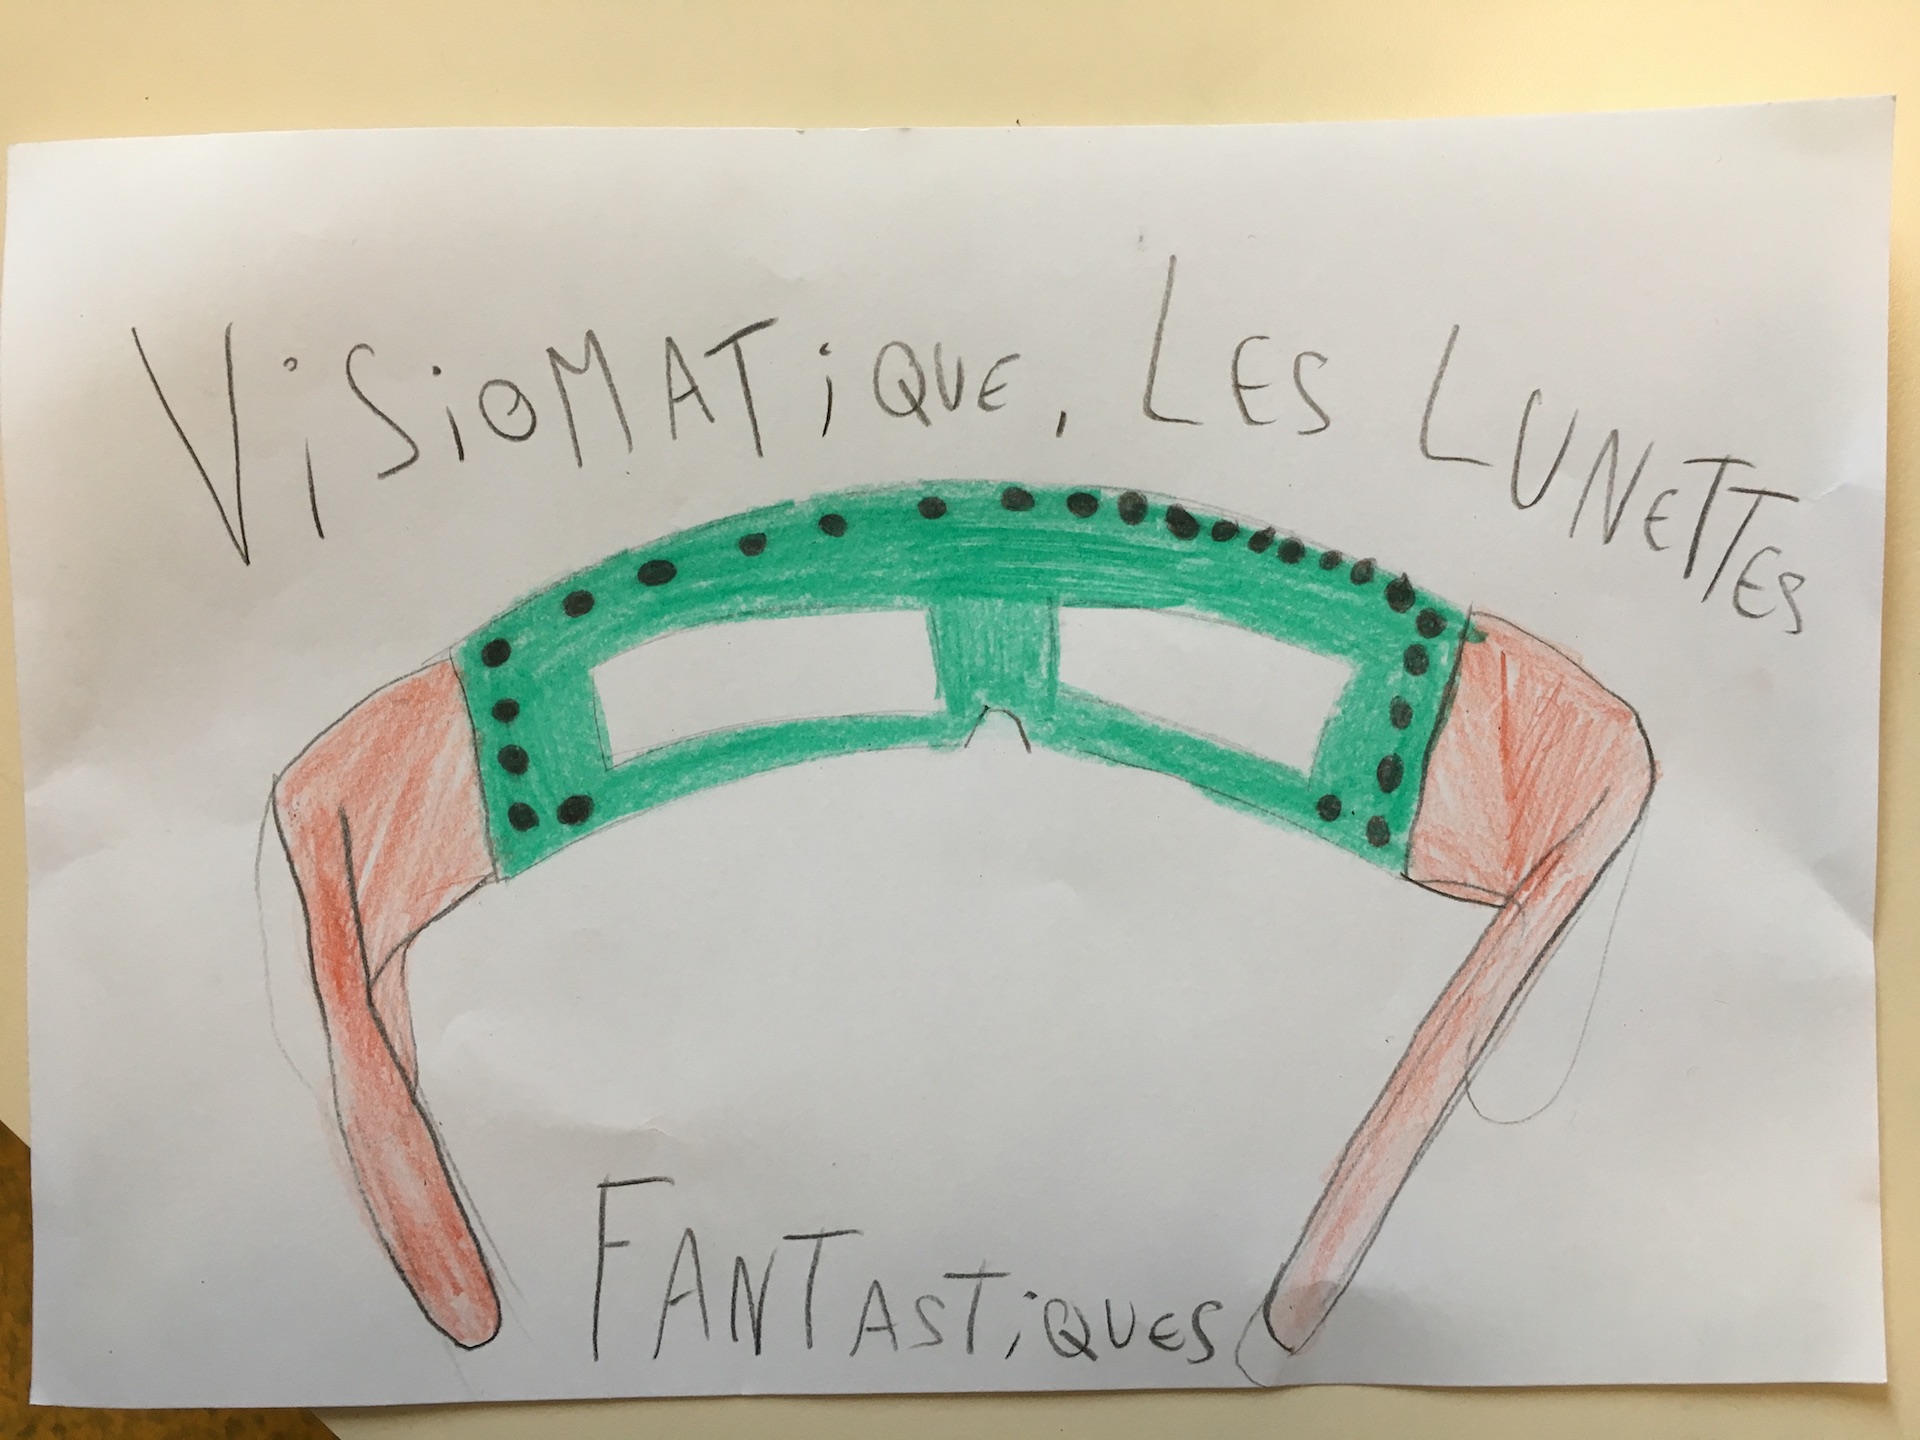 ViSiOMATiQUE, LES LUNETTES
FANTASTiQUES